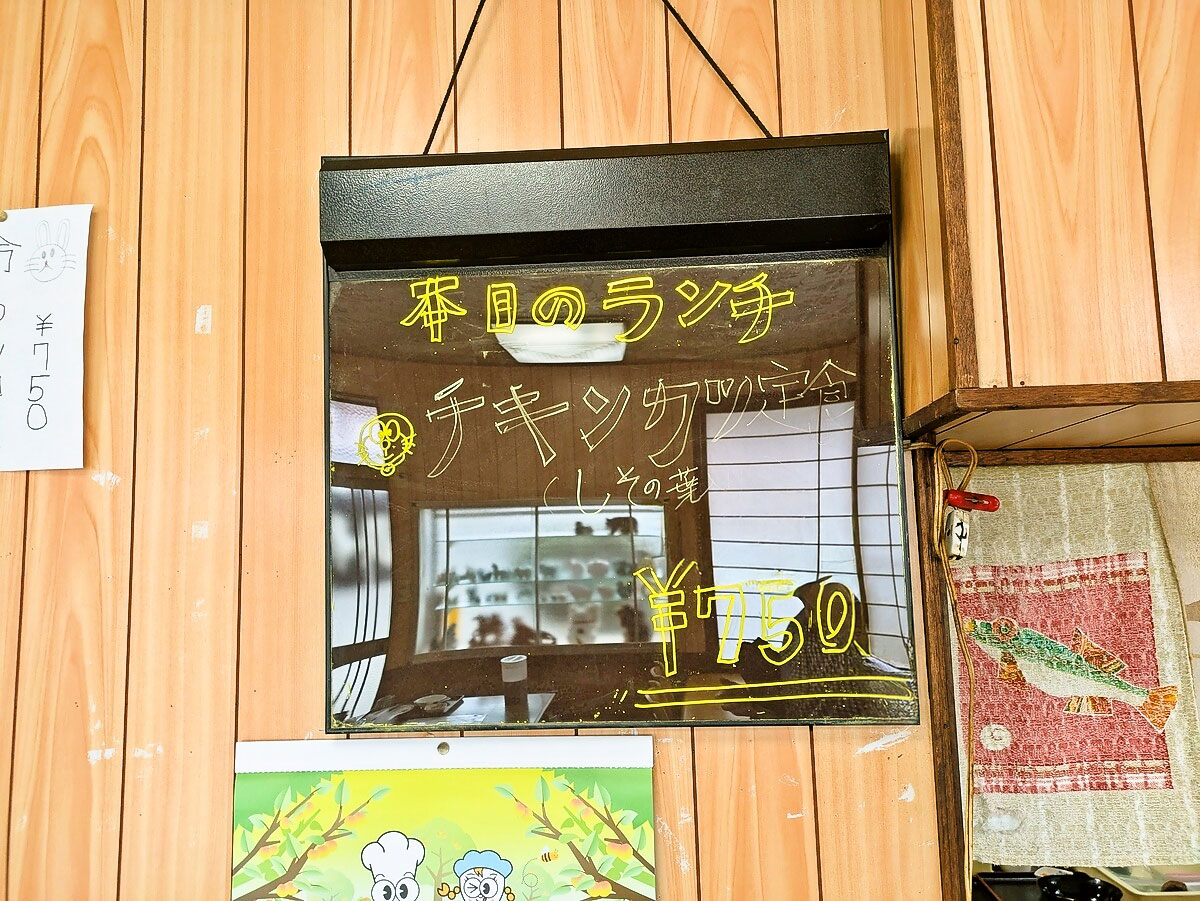 本日のランチ
チキンカツ定食
(しその葉)
¥750
¥750